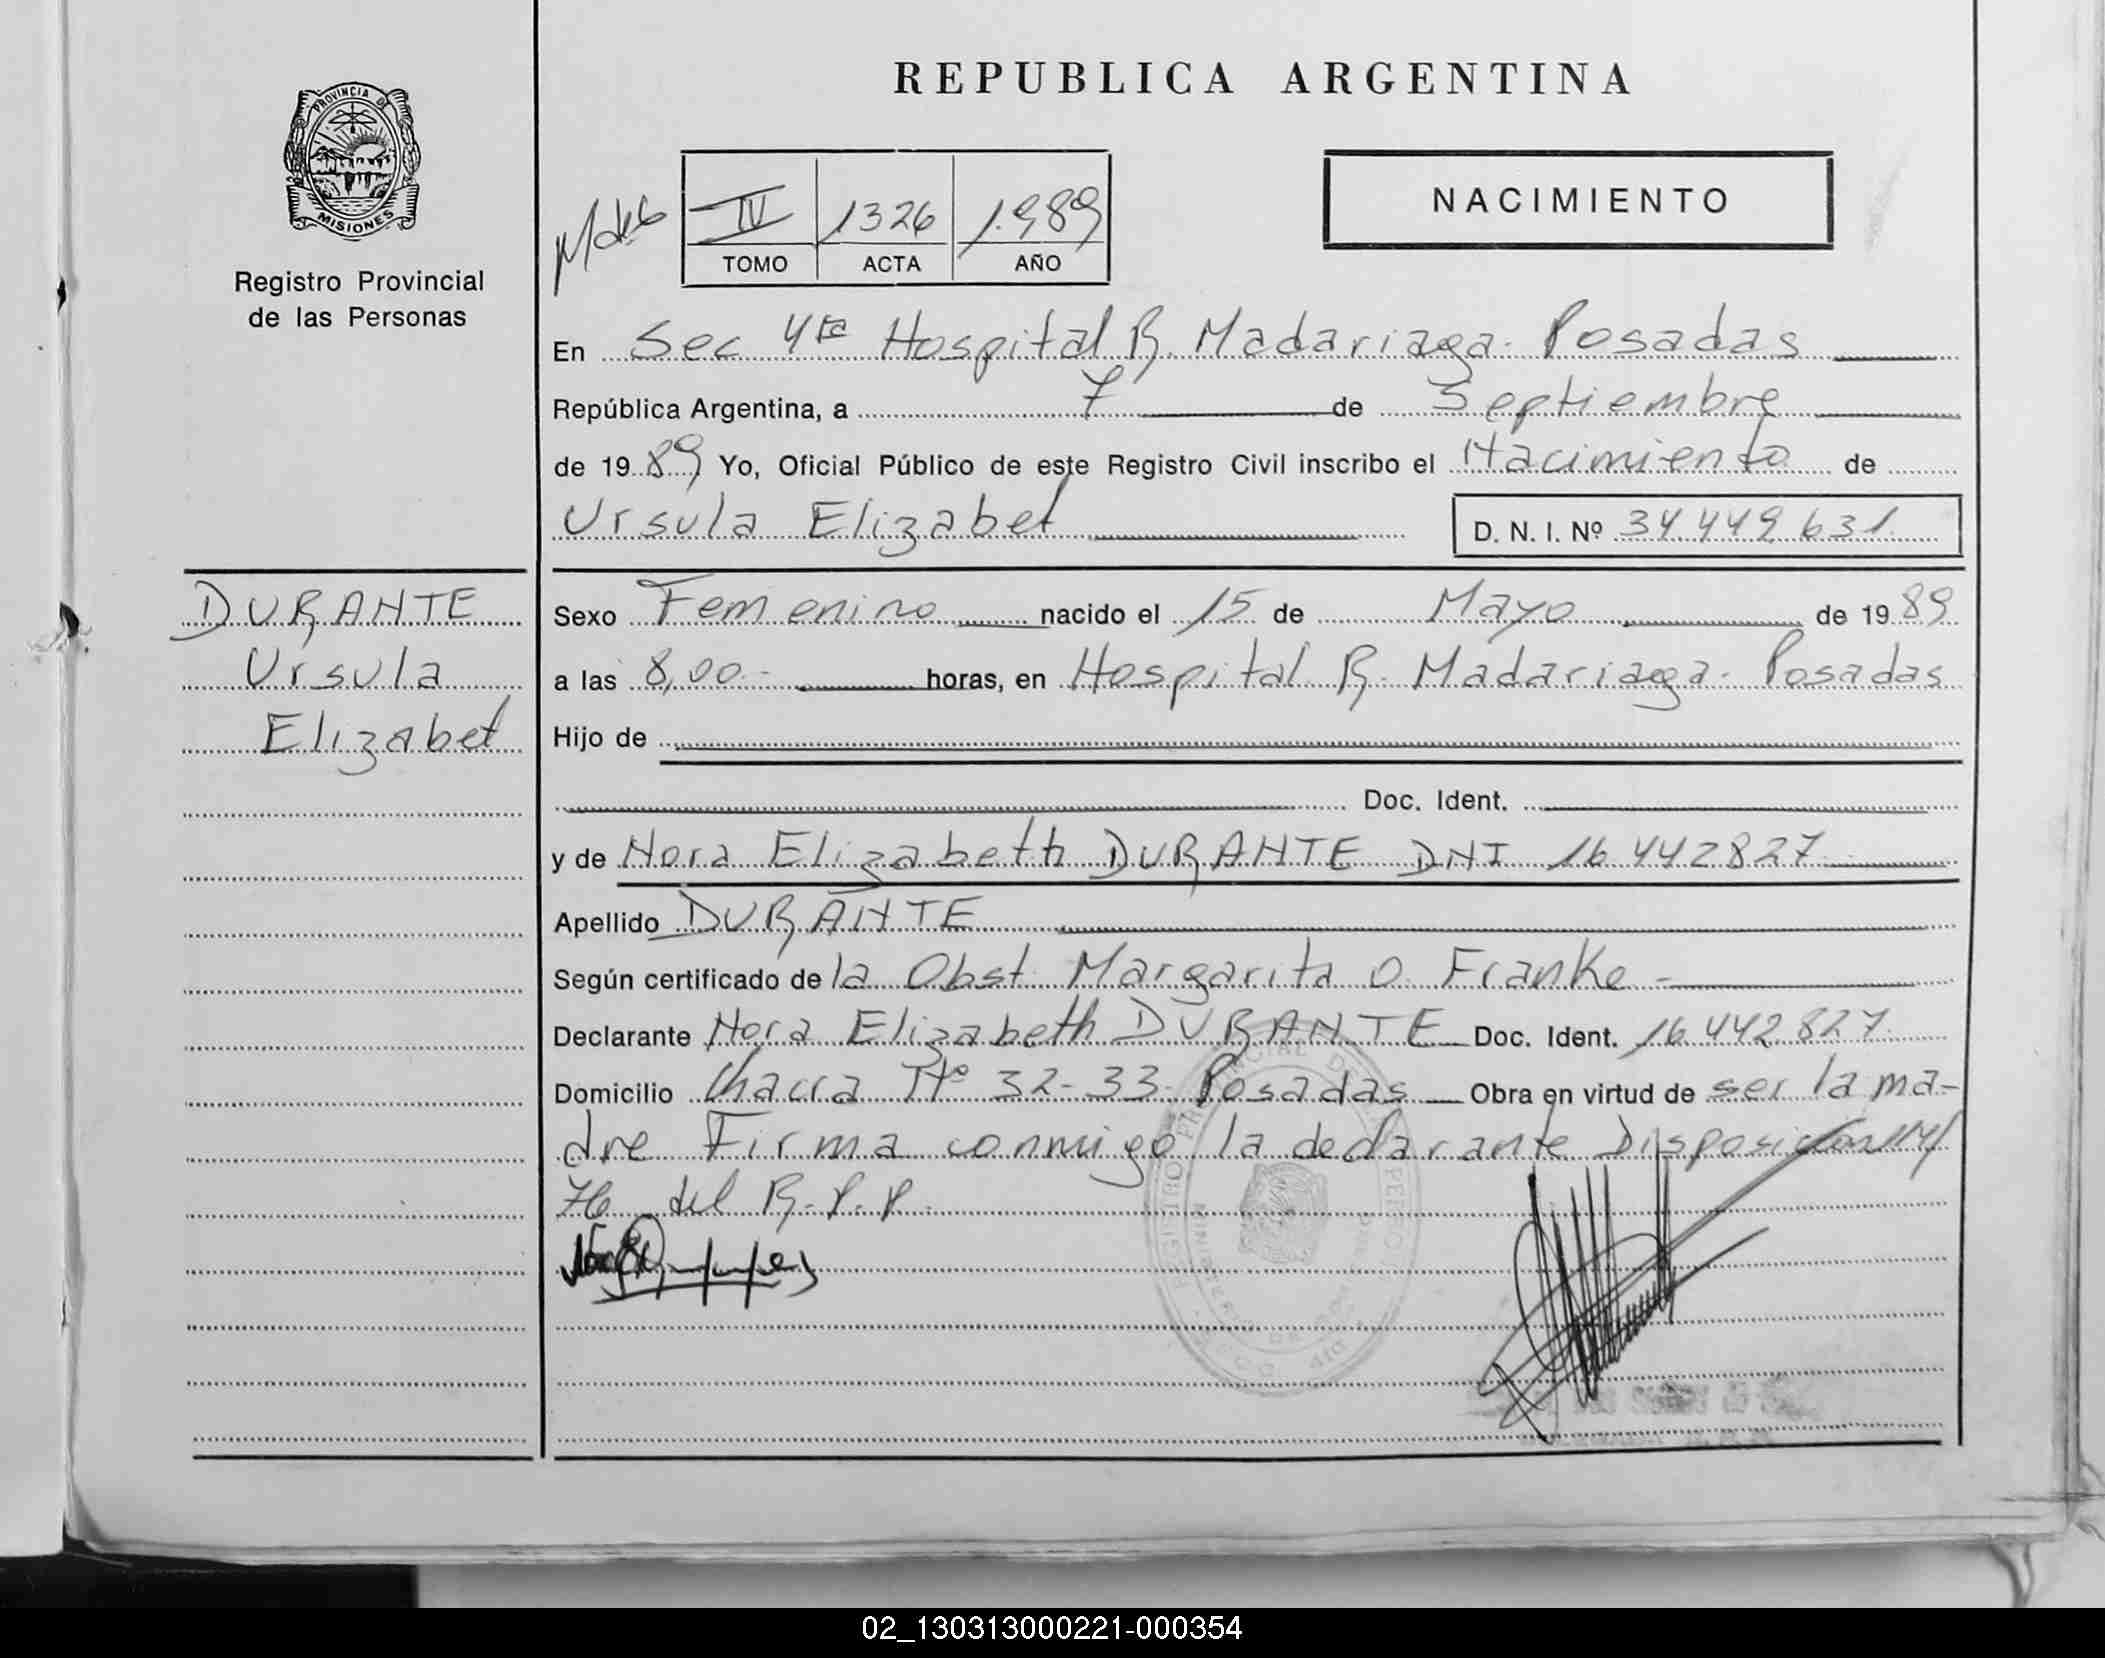 REPUBLICA ARGENTINA
PROVINCIA DE
MISIONES
Registro Provincial
de las Personas
IV 1326 1.989
TOMO ACTA AÑO
NACIMIENTO
En Sec 4ta Hospital R. Madariaga. Posadas
República Argentina, a 7 de Septiembre
de 1989 Yo, Oficial Público de este Registro Civil inscribo el Nacimiento de
Ursula Elizabet D. N. I. Nº 34.449.631
DURANTE
Ursula
Elizabet
Sexo Femenino nacido el 15 de Mayo de 1989
a las 8,00.- horas, en Hospital R. Madariaga. Posadas
Hijo de
Doc. Ident.
y de Nora Elizabeth DURANTE DNI 16.442827
Apellido DURANTE
Según certificado de la Obst. Margarita O. Franke -
Declarante Nora Elizabeth DURANTE Doc. Ident. 16.442.827
Domicilio Chacra Nº 32-33- Posadas Obra en virtud de ser la ma-
dre Firma conmigo la declarante Disposición 114/
76 del R.P.P.
02_130313000221-000354